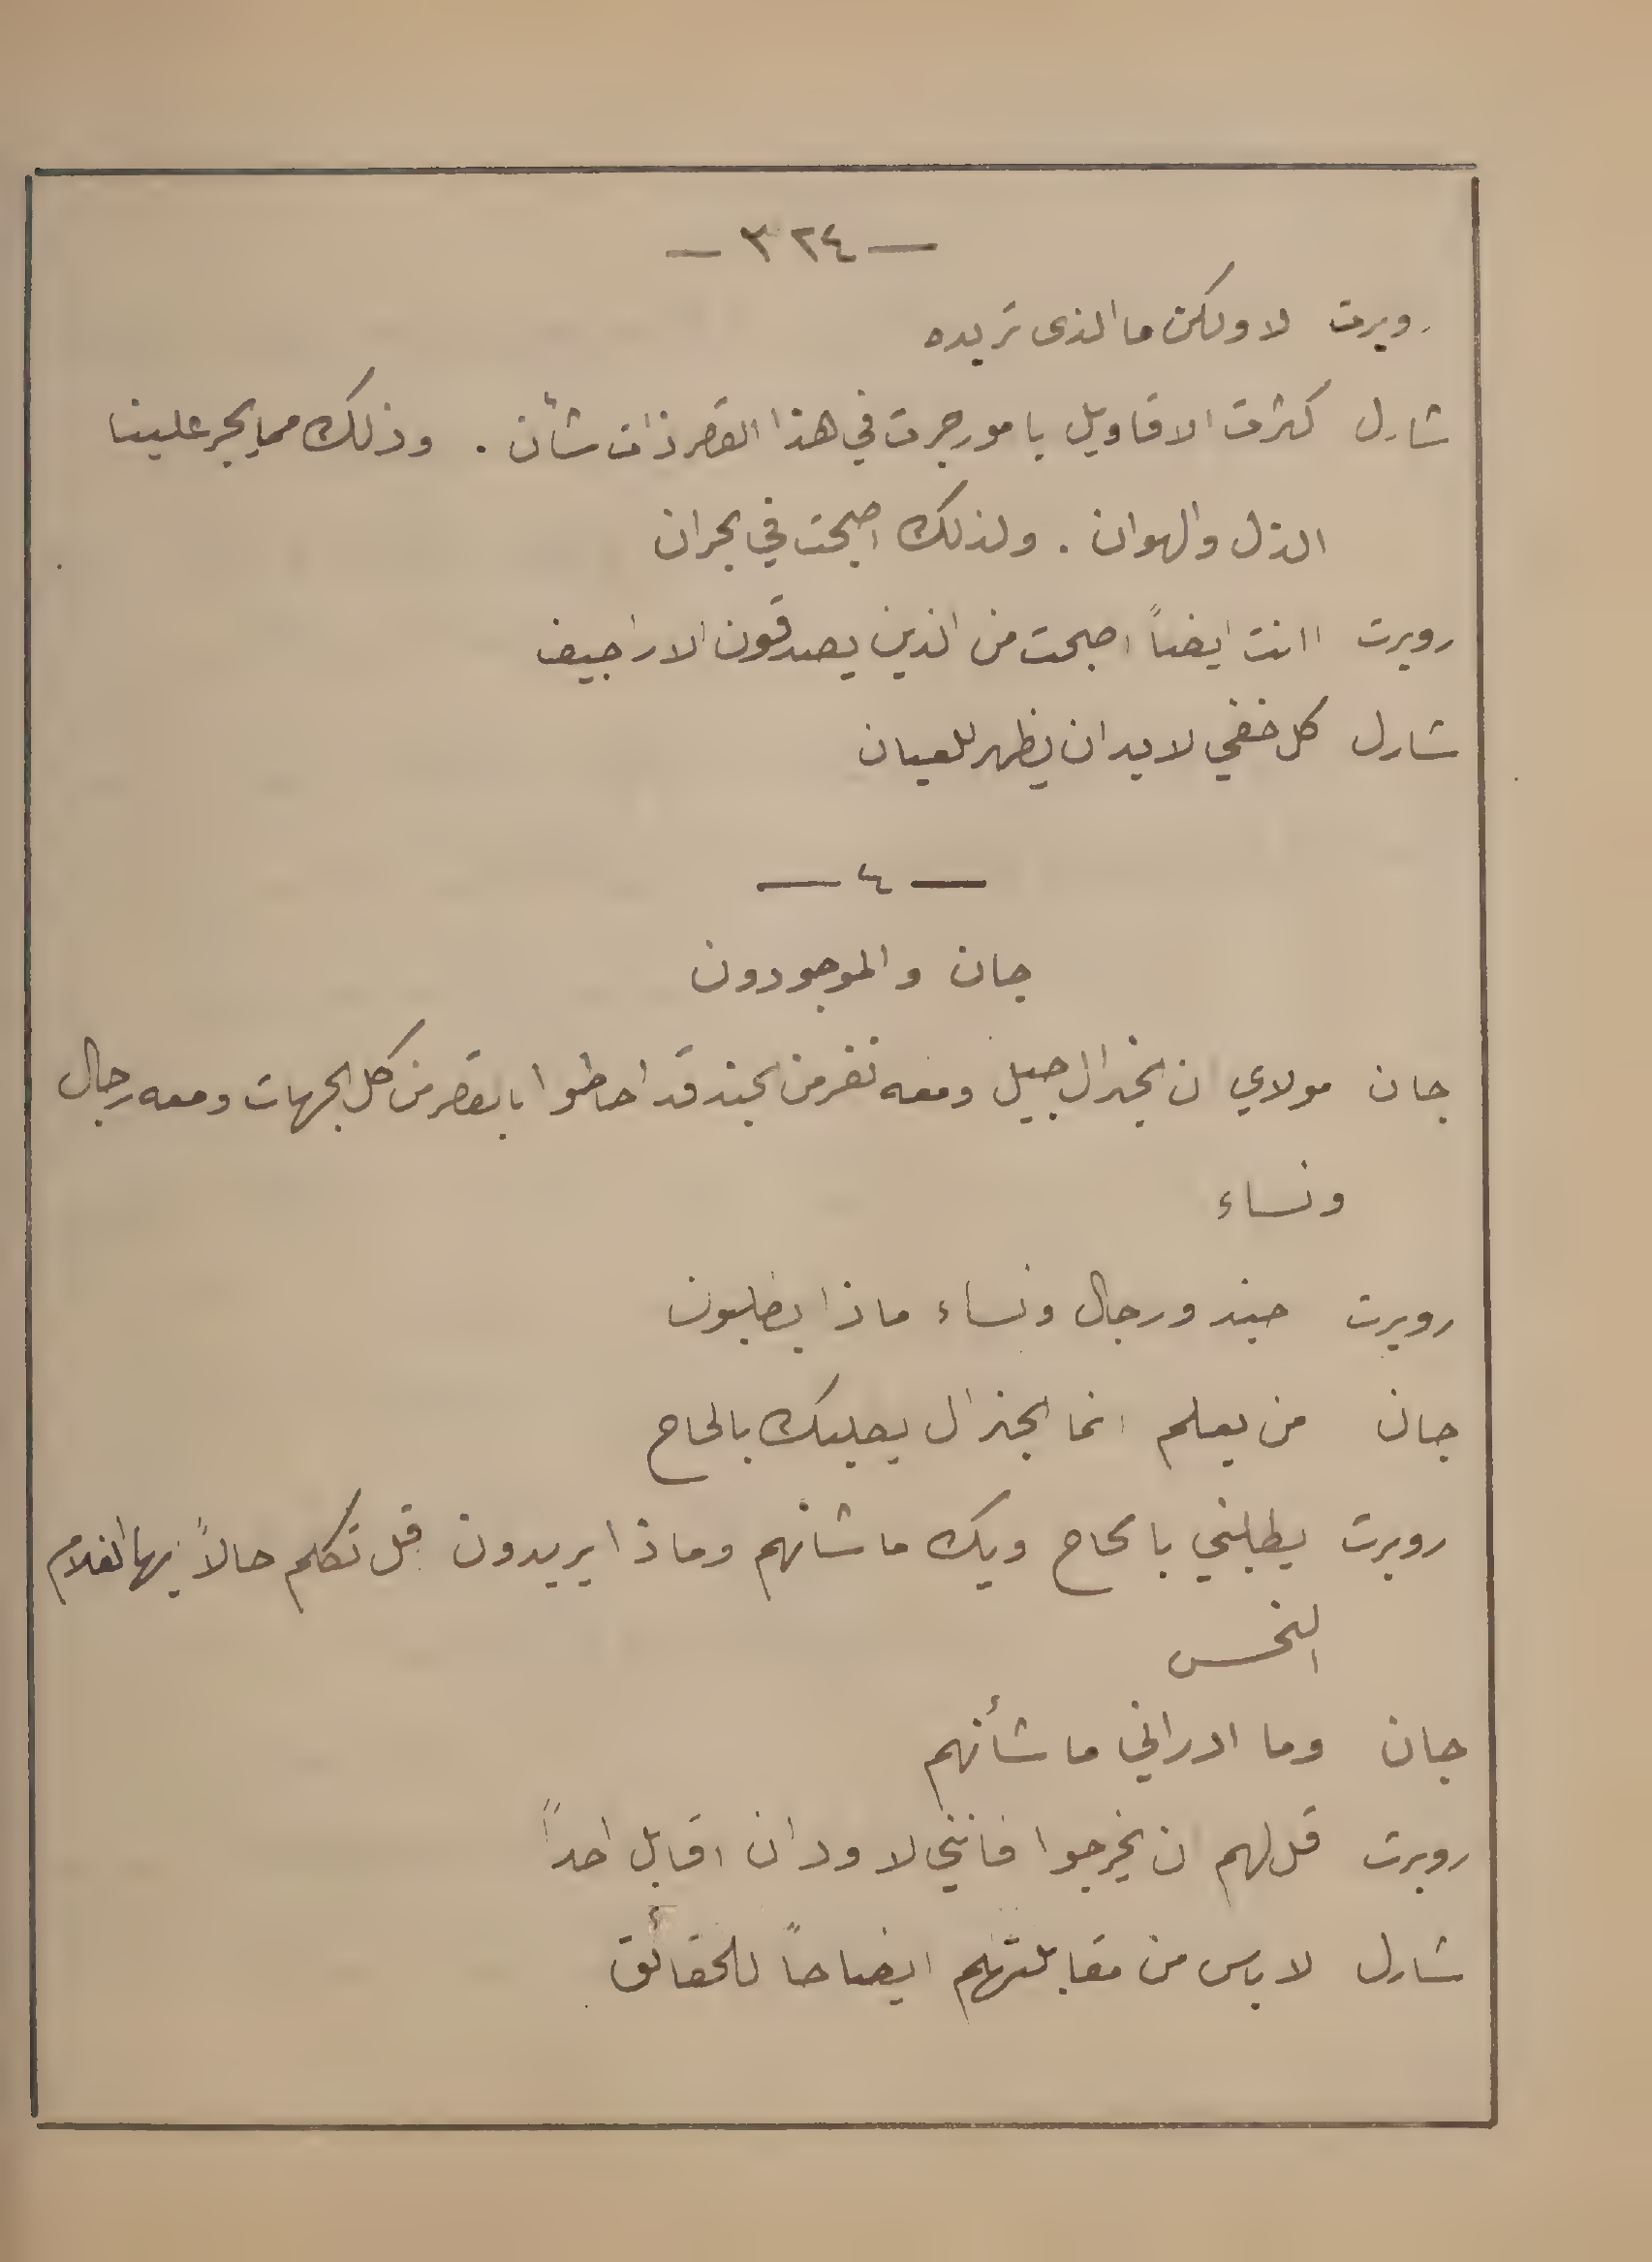 — ٣٢٤ —
روبرت لا ولكن ما الذى تريده
شارل كثرت الاقاويل بامور جرت في هذا القصر ذات شأن . وذلك مما يجر علينا
الذل والهوان . ولذلك اصبحت في بحران
روبرت اانت ايضاً اصبحت من الذين يصدقون الاراجيف
شارل كل خفي لابد ان يظهر للعيان
— ٤ —
جان والموجودون
جان مولاي ان الجنرال جبيل ومعه نفر من الجند قد احاطوا بالقصر من كل الجهات ومعه رجال
ونساء
روبرت جند ورجال ونساء ماذا يطلبون
جان من يعلم انما الجنرال يطلبك بالحاح
روبرت يطلبني بالحاح ويك ما شانهم وماذا يريدون قل تكلم حالاً ايها الغلام
النحس
جان وما ادراني ما شأنهم
روبرت قل لهم ان يخرجوا فانني لا اود ان اقابل احداً
شارل لا باس من مقابلتهم ايضاحاً للحقائق